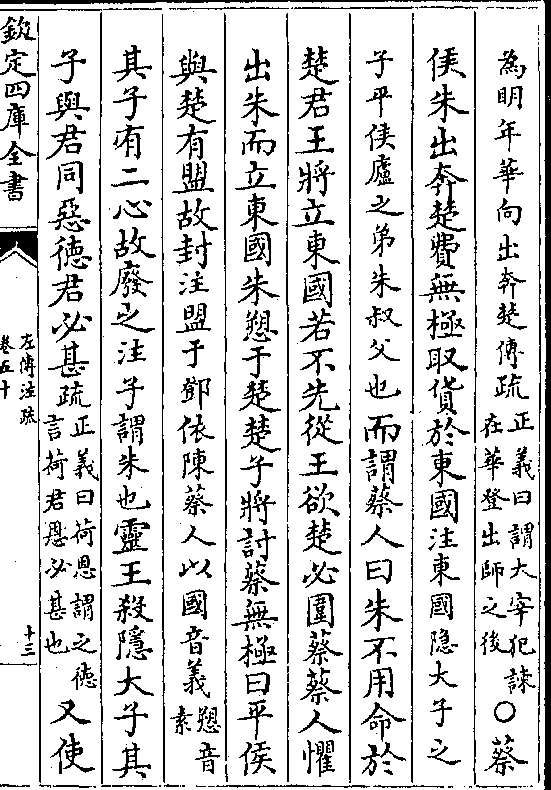 為明年華向出奔楚傳疏正義曰謂大宰犯諫
在華登出師之後○蔡
侯朱出奔楚費無極取貨於東國注東國隐大子之
子平侯廬之弟朱叔父也而謂蔡人曰朱不用命於
楚君王將立東國若不先從王欲楚必圍蔡蔡人懼
出朱而立東國朱愬于楚楚子將討蔡無極曰平侯
與楚有盟故封注盟于鄧依陳蔡人以國音義愬音
素
其子有二心故廢之注子謂朱也靈王殺隱大子其
子與君同惡德君必甚疏正義曰荷恩謂之德
言荷君恩必甚也又使
欽定四庫全書
左傳注疏
卷五十
十三